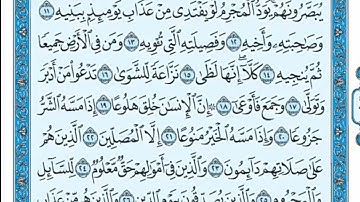 يُبَصَّرُونَهُمْ يَوَدُّ الْمُجْرِمُ لَوْ يَفْتَدِي مِنْ عَذَابِ يَوْمِئِذٍ بِبَنِيهِ ١١
وَصَاحِبَتِهِ وَأَخِيهِ ١٢ وَفَصِيلَتِهِ الَّتِي تُؤْوِيهِ ١٣ وَمَنْ فِي الْأَرْضِ جَمِيعًا
ثُمَّ يُنْجِيهِ ١٤ كَلَّا إِنَّهَا لَظَى ١٥ نَزَّاعَةً لِلشَّوَى ١٦ تَدْعُو مَنْ أَدْبَرَ
وَتَوَلَّى ١٧ وَجَمَعَ فَأَوْعَى ١٨ إِنَّ الْإِنْسَانَ خُلِقَ هَلُوعًا ١٩ إِذَا مَسَّهُ الشَّرُّ
جَزُوعًا ٢٠ وَإِذَا مَسَّهُ الْخَيْرُ مَنُوعًا ٢١ إِلَّا الْمُصَلِّينَ ٢٢ الَّذِينَ هُمْ
عَلَى صَلَاتِهِمْ دَائِمُونَ ٢٣ وَالَّذِينَ فِي أَمْوَالِهِمْ حَقٌّ مَعْلُومٌ ٢٤ لِلسَّائِلِ
وَالْمَحْرُومِ ٢٥ وَالَّذِينَ يُصَدِّقُونَ بِيَوْمِ الدِّينِ ٢٦ وَالَّذِينَ هُمْ مِنْ عَذَابِ